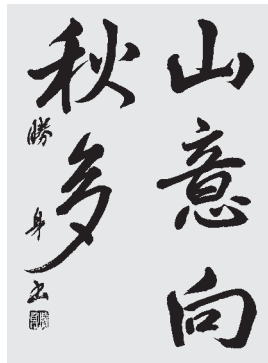 山意向
秋多
勝身書